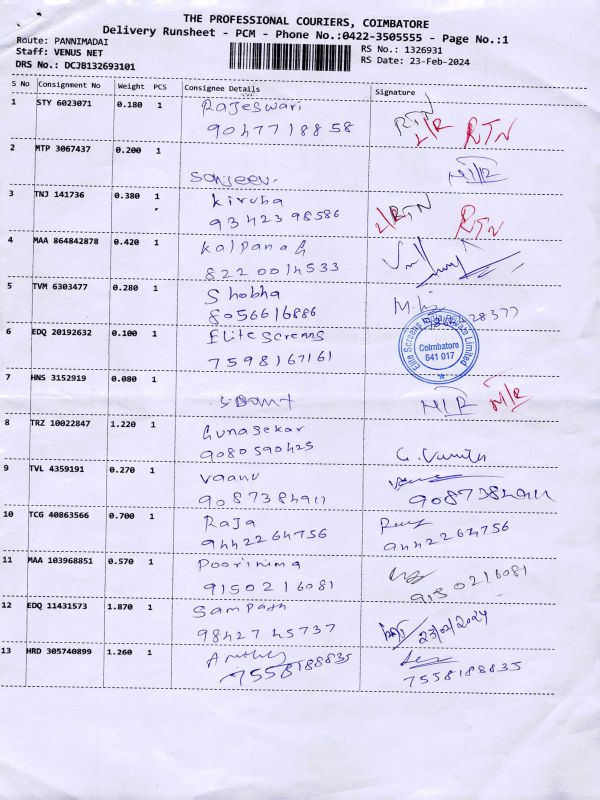 THE PROFESSIONAL COURIERS, COIMBATORE
Delivery Runsheet - PCM - Phone No.:0422-3505555 - Page No.:1
Route: PANNIMADAI
RS No.: 1326931
Staff: VENUS NET
RS Date: 23-Feb-2024
DRS No.: DCJB132693101
S No Consignment No Weight PCS Consignee Details Signature
1 STY 6023071 0.180 1 Rajeswari RTN
9047718858 L/R RTN
2 MTP 3067437 0.200 1
Sanjeev. N/R
3 TNJ 141736 0.380 1 Kiruba L/R RTN RTN
9342398586
4 MAA 864842878 0.420 1 Kalpana G
8220014533
5 TVM 6303477 0.280 1 Shobha
8056616886 28377
6 EDQ 20192632 0.100 1 Elite Screens Elite Screens India Private Limited
Coimbatore
641 017
7598167161
7 HNS 3152919 0.080 1
N/R N/R
8 TRZ 10022847 1.220 1 Gunasekar
9080590425 G. Vanitha
9 TVL 4359191 0.270 1 Vaanu
9087384911 9087384911
10 TCG 40863566 0.700 1 Raja
9442264756 9442264756
11 MAA 103968851 0.570 1 Poornima
9150216081 9150216081
12 EDQ 11431573 1.870 1 Sampath
9842745737 23/02/2024
13 HRD 305740899 1.260 1
7558188835 7558188835